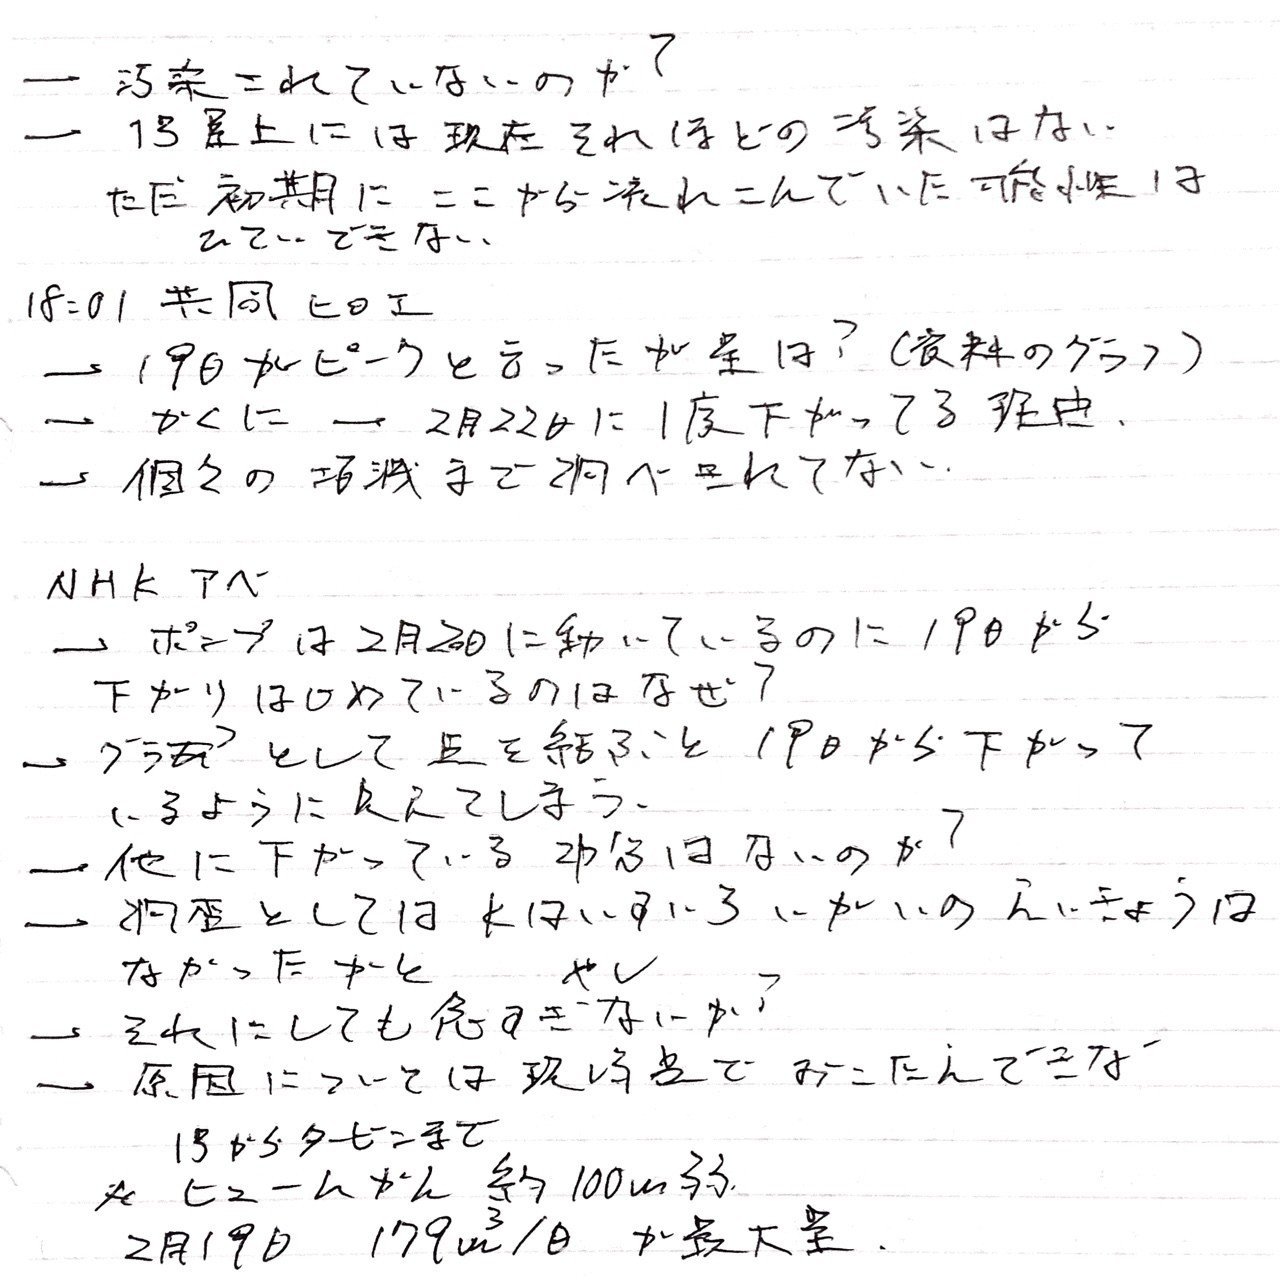 — 汚染されていないのか?
— 1号屋上には現在それほどの汚染はない
ただ初期にここから流れこんでいた可能性は
ひていできない
18:01 共同 ヒロエ
→ 19日がピークと言ったが量は?(資料のグラフ)
→ かくに → 2月22日に1度下がってる 理由.
→ 個々の 増減まで調べきれてない.
NHK アベ
→ ポンプは2月20日に動いているのに19日から
下がりはじめているのはなぜ?
→ グラフ として点を結ぶと19日から下がって
いるように見えてしまう.
→ 他に下がっている 功容はないのか?
→ としては Kはいすいろ いがいの えいきょうは
なかったかと
→ それにしても急すぎないか?
→ 原因については現時点で おこたえできな
1号からタービンまで
※ ヒュームかん 約100m弱.
2月19日 179m³/日 が最大量.